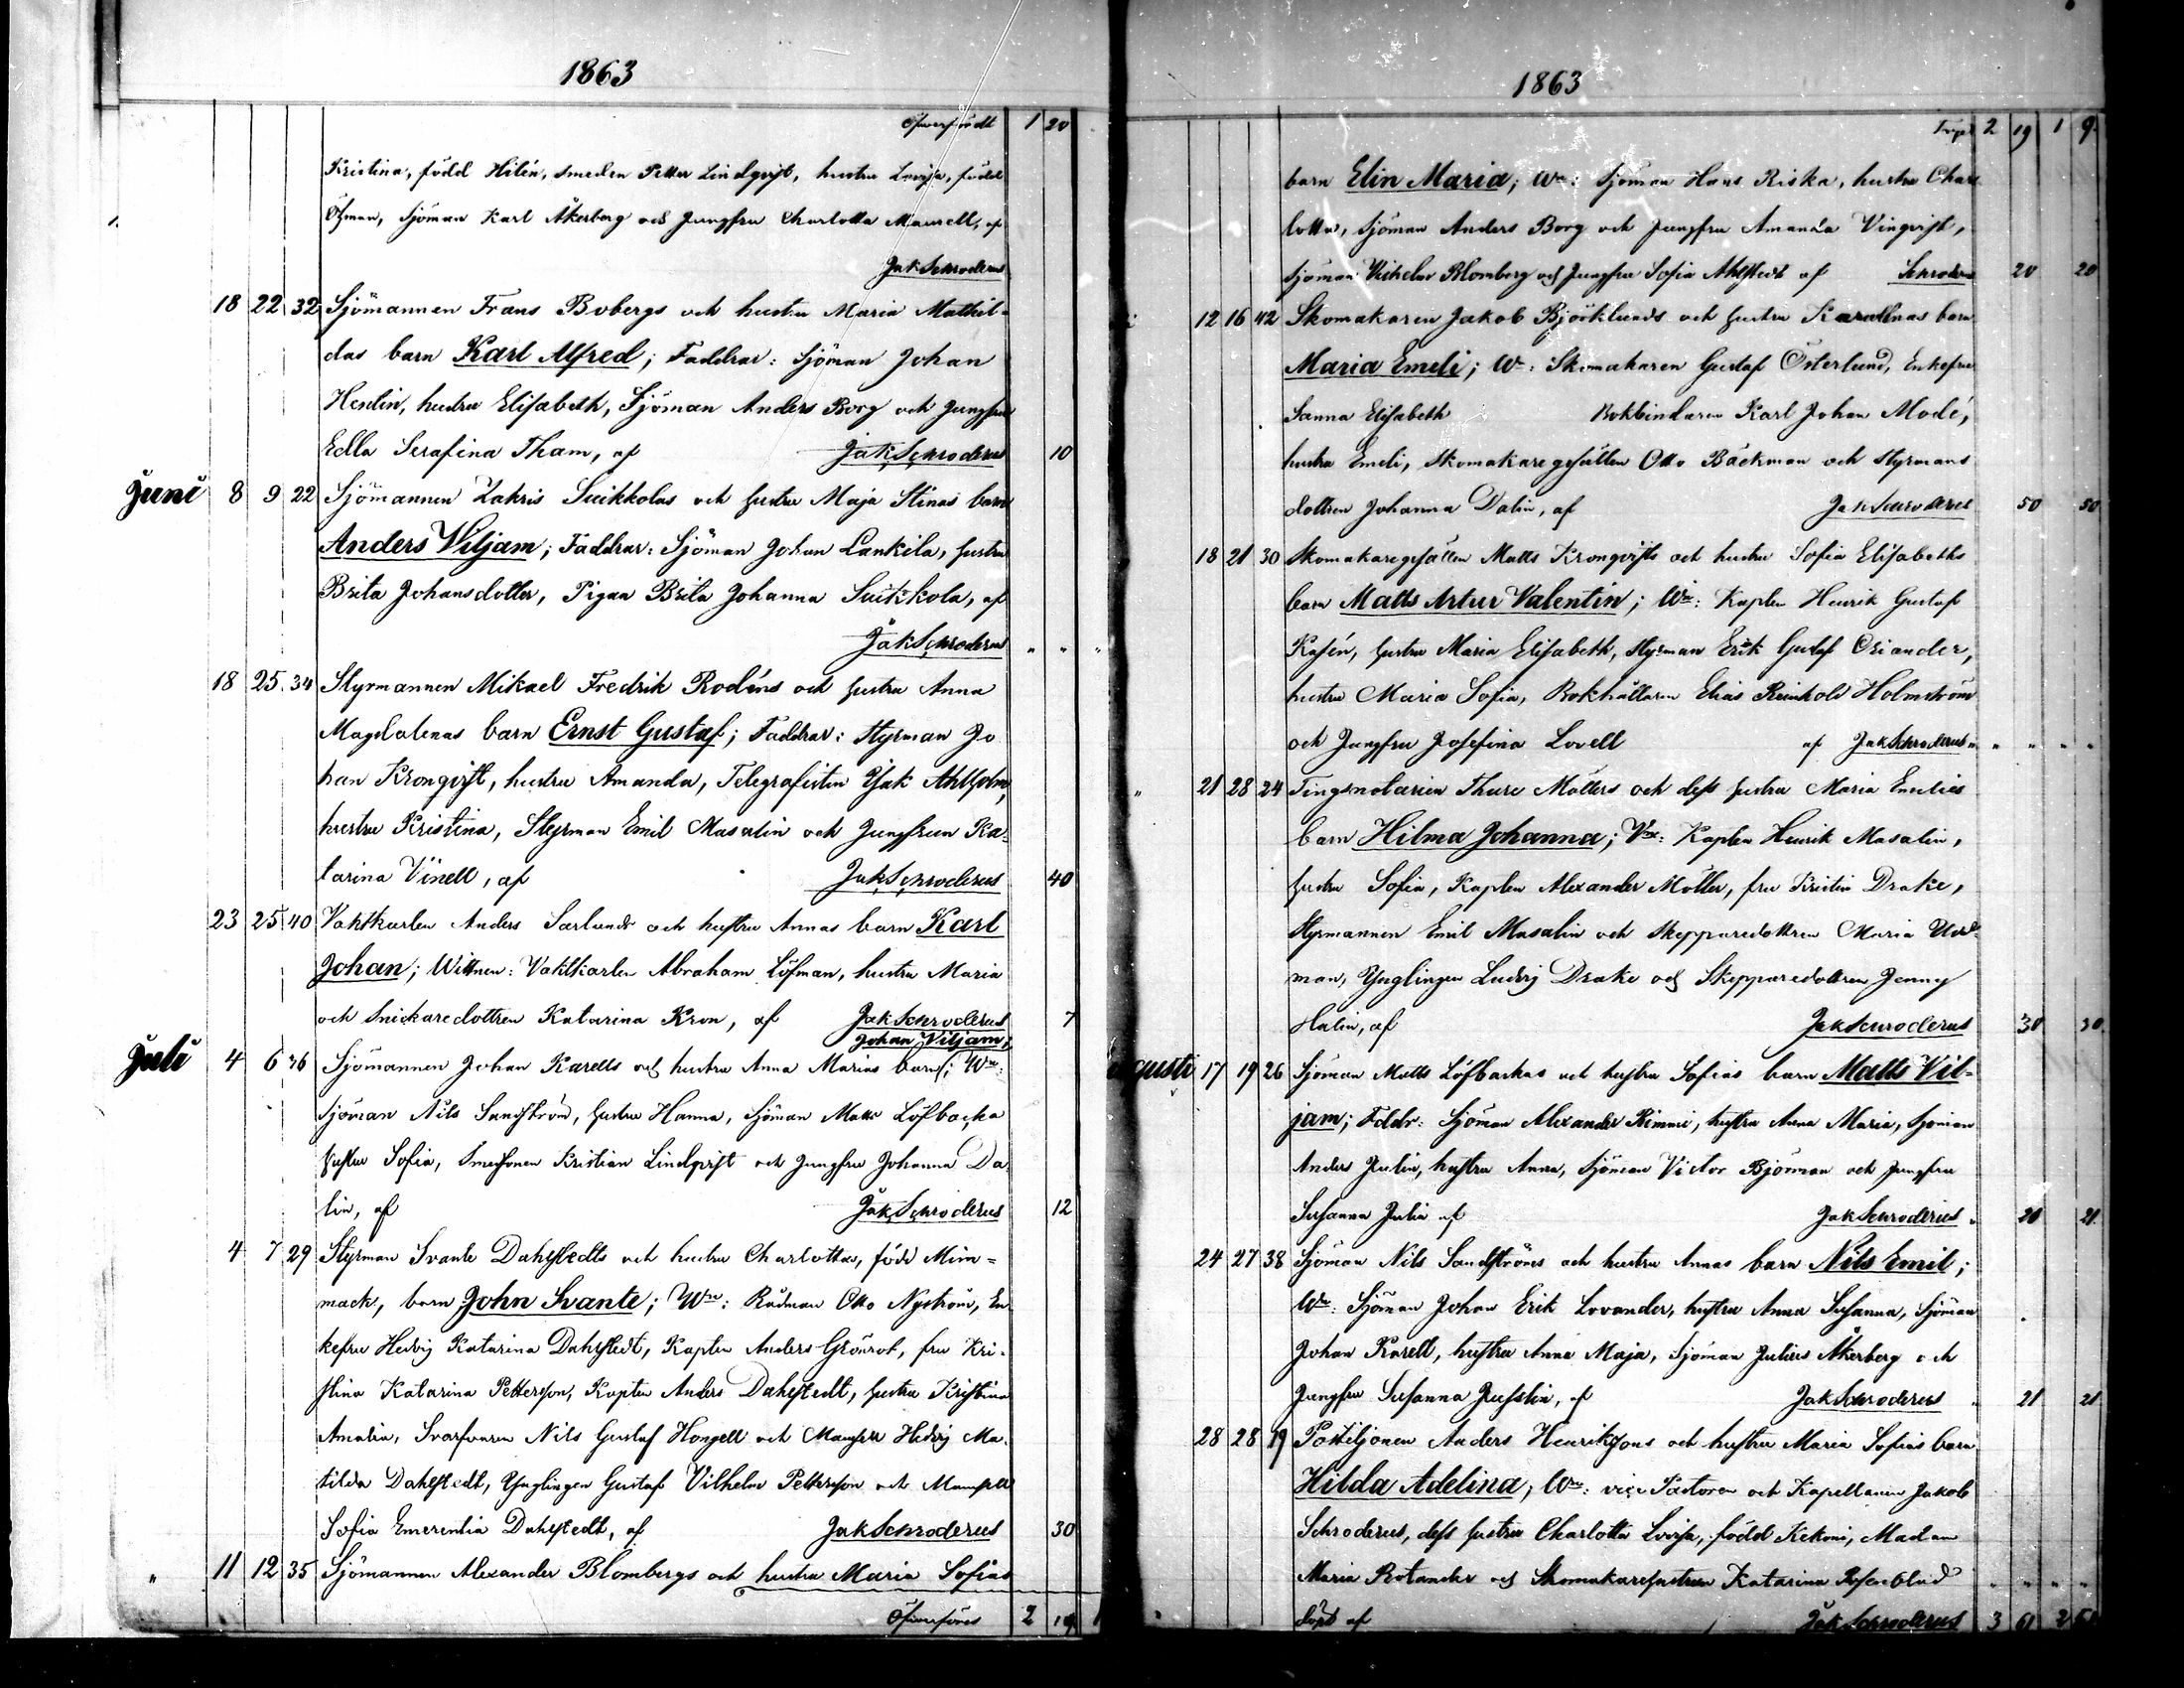 1863
Öfverfördt 1 20
Kristina, född Hilén, smeden Petter Lindqvist, hustru Lovisa, född
Öhman, sjöman Karl Åkerberg och Jungfru Charlotta Maurell, af
Jak Schroderus
18 22 32 Sjömannen Frans Bobergs och hustru Maria Mathil-
das barn Karl Alfred; Faddrar: Sjöman Johan
Henlin, hustru Elisabeth, Sjöman Anders Borg och Jungfru
Edla Serafina Tham, af Jak Schroderus 10
Juni 8 9 22 Sjömannen Zakris Suikkolas och hustru Maja Stinas barn
Anders Viljam; Faddrar: Sjöman Johan Lankila, hustru
Brita Johansdotter, Pigan Brita Johanna Suikkola, af
Jak Schroderus " "
18 25 34 Styrmannen Mikael Fredrik Rodéns och hustru Anna
Magdalenas barn Ernst Gustaf; Faddrar: Styrman Jo
han Kronqvist, hustru Amanda, Telegrafisten Isak Ahlholm,
hustru Kristina, Styrman Emil Masalin och Jungfrun Ka-
tarina Vinell, af Jak Schroderus 40
23 25 40 Vaktkarlen Anders Sarlunds och hustru Annas barn Karl
Johan; Wittnen: Vaktkarlen Abraham Löfman, hustru Maria
och Snickaredottren Katarina Kron, af Jak Schroderus 7
Johan Viljam;
Juli 4 6 36 Sjömannen Johan Karells och hustru Anna Marias barn; Wn:
sjöman Nils Sandström, hustru Hanna, Sjöman Matts Löfbacka
hustru Sofia, Smedsonen Kristian Lindqvist och Jungfru Johanna Da
lin, af Jak Schroderus 12
4 7 29 Styrman Svante Dahlstedts och hustru Charlottas, född Mim=
mack, barn John Svante; Wn: Rådman Otto Nyström, En
kefru Hedvig Katarina Dahlstedt, Kapten Anders Grönrot, fru Kri-
stina Katarina Pettersson, Kapten Anders Dahlstedt, hustru Kristina
Amalia, Svarfvaren Nils Gustaf Hongell och Mamsell Hedvig Ma-
tilda Dahlstedt, Ynglingen Gustaf Vilhelm Pettersson och Mamsell
Sofia Emerentia Dahlstedt, af Jak Schroderus 30
" 11 12 35 Sjömannen Alexander Blombergs och hustru Maria Sofias
Öfverföres 2 19
1863
Trspt 2 19 1 9
barn Elin Maria; Wn: Sjöman Hans Riska, hustru Char
lotta, Sjöman Anders Borg och Jungfru Amanda Vinqvist,
sjöman Vilhelm Blomberg och Jungfru Sofia Ahlstedt af Schroderus 20 20
12 16 42 Skomakaren Jakob Björklunds och hustru Karolinas barn
Maria Emeli; Wn: Skomakaren Gustaf Österlund, Enkefru
Sanna Elisabeth Bokbindaren Karl Johan Modé,
hustru Emeli, Skomakaregesällen Otto Bäckman och Styrmans
dottren Johanna Dalin, af Jak Schroderus 50 50
18 21 30 Skomakaregesällen Matts Kronqvists och hustru Sofia Elisabeths
barn Matts Artur Valentin; Wn: Kapten Henrik Gustaf
Kasén, hustru Maria Elisabeth, Styrman Erik Gustaf Oriander,
hustru Maria Sofia, Bokhållaren Elias Reinhold Holmström
och Jungfru Josefina Lovell af Jak Schroderus " " " "
" 21 28 24 Tingsnotarien Thure Möllers och dess hustru Maria Emelies
barn Hilma Johanna; Vn: Kapten Henrik Masalin,
hustru Sofia, Kapten Alexander Möller, fru Kristin Drake,
Styrmannen Emil Masalin och Skepparedottren Maria
man, Ynglingen Ludvig Drake och Skepparedottren Jenny
Halin, af Jak Schroderus 30 30
Augusti 17 19 26 Sjöman Matts Löfbackas och hustru Sofias barn Matts Vil-
jam; Fddr: Sjöman Alexander Rimmi, hustru Anna Maria, Sjöman
Anders Julin, hustru Anna, Sjöman Victor Björman och Jungfru
Susanna Julin af Jak Schroderus 21 21
24 27 38 Sjöman Nils Sandströms och hustru Annas barn Nils Emil;
Wn: Sjöman Johan Erik Lovander, hustru Anna Susanna, Sjöman
Johan Karell, hustru Anna Maja, Sjöman Julius Åkerberg och
Jungfru Susanna Jusslin, af Jak Schroderus 21 21
28 28 19 Postiljonen Anders Henrikssons och hustru Maria Sofias barn
Hilda Adelina; Wn: vice Pastoren och Kapellanen Jakob
Schroderus, dess hustru Charlotta Lovisa, född Kekoni, Madam
Maria Rotander och Skomakarehustrun Katarina Rosenblad " " " "
döpt af Jak Schroderus 3 61 2 51